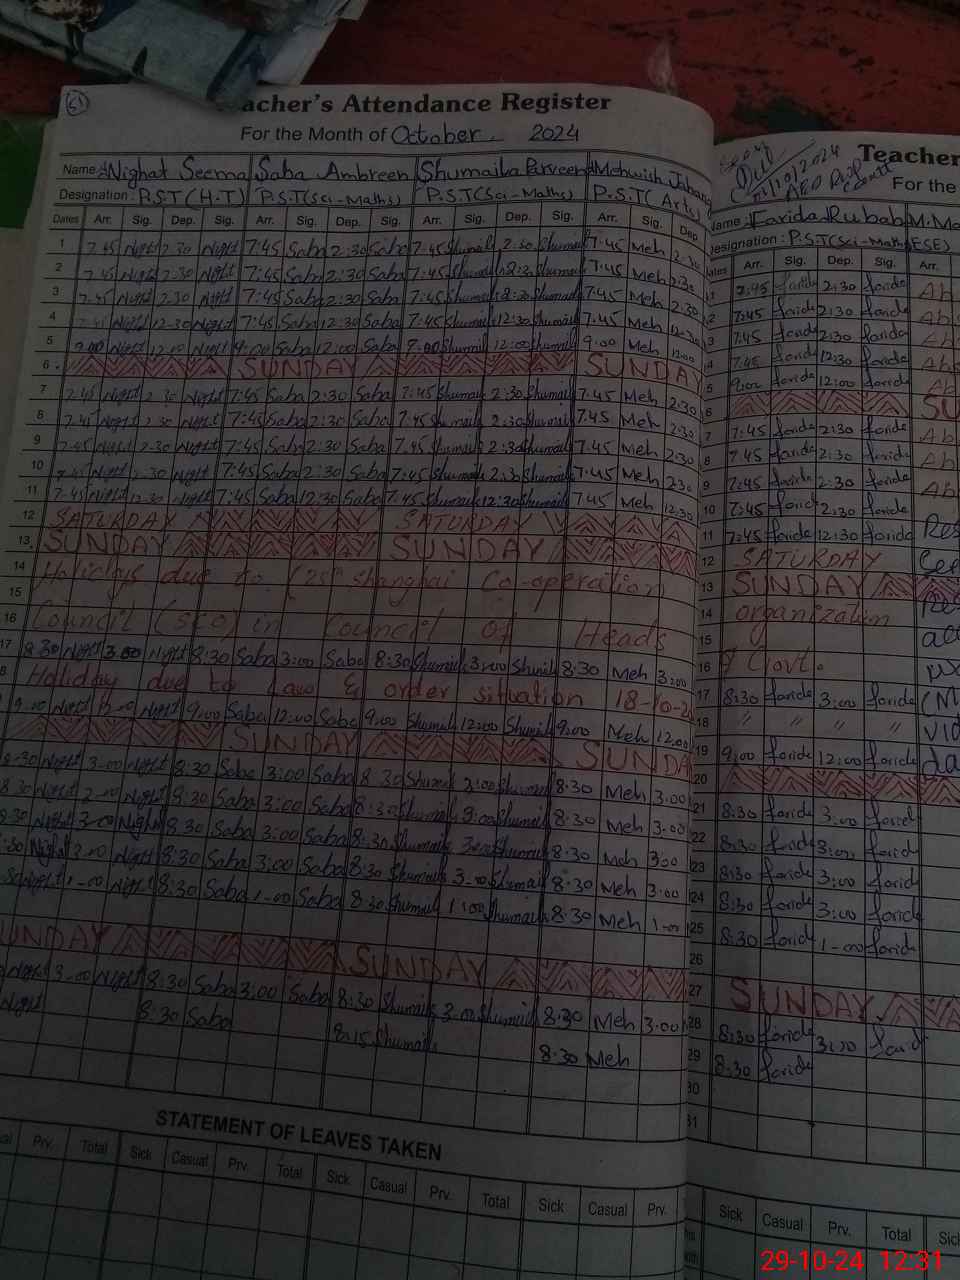 61
acher's Attendance Register
For the Month of October 2024
Name: Nighat Seema Saba Ambreen Shumaila Parveen Mehwish Jahan
Designation: P.S.T(H.T) P.S.T(Sci-Maths) P.S.T(Sci-Maths) P.S.T(Arts)
Dates Arr. Sig. Dep. Sig. Arr. Sig. Dep. Sig. Arr. Sig. Dep. Sig. Arr. Sig. Dep
1 7.45 Night 2.30 Night 7:45 Saba 2:30 Saba 7.45 Shumaila 2.30 Shumaila 7.45 Meh 2.30
2 7.45 Night 2.30 Night 7:45 Saba 2:30 Saba 7.45 Shumaila 2:30 Shumaila 7.45 Meh 2.30
3 7.45 Night 2.30 Night 7:45 Saba 2:30 Saba 7.45 Shumaila 2:30 Shumaila 7.45 Meh 2.30
4 7.45 Night 12-30 Night 7:45 Saba 12:30 Saba 7.45 Shumaila 12:30 Shumaila 7.45 Meh 12.30
5 9.00 Night 12.00 Night 9:00 Saba 12:00 Saba 9:00 Shumaila 12:00 Shumaila 9:00 Meh 12.00
6 SUNDAY SUNDAY
7 7.45 Night 2.30 Night 7:45 Saba 2:30 Saba 7:45 Shumaila 2:30 Shumaila 7.45 Meh 2.30
8 7.45 Night 2.30 Night 7:45 Saba 2:30 Saba 7.45 Shumaila 2:30 Shumaila 7.45 Meh 2.30
9 7.45 Night 2-30 Night 7:45 Saba 2:30 Saba 7.45 Shumaila 2:30 Shumaila 7.45 Meh 2.30
10 7.45 Night 2.30 Night 7:45 Saba 2:30 Saba 7:45 Shumaila 2:30 Shumaila 7.45 Meh 2.30
11 7-45 Night 12-30 Night 7:45 Saba 12:30 Saba 7.45 Shumaila 12:30 Shumaila 7.45 Meh 12.30
12 SATURDAY SATURDAY
13 SUNDAY SUNDAY
14 Holidays due to (25th Shanghai Co-operation
15
16 Council (SCO) in Council of Heads
17 8.30 Night 3.00 Night 8:30 Saba 3:00 Saba 8:30 Shumaila 3:00 Shumaila 8:30 Meh 3:00
8 Holiday due to Law & order situation 18-10-2
9.00 Night 12.00 Night 9:00 Saba 12:00 Saba 9:00 Shumaila 12:00 Shumaila 9:00 Meh 12.00
SUNDAY SUNDA
8-30 Night 3-00 Night 8:30 Saba 3:00 Saba 8:30 Shumaila 3:00 Shumaila 8:30 Meh 3:00
8.30 Night 3-00 Night 8:30 Saba 3:00 Saba 8:30 Shumaila 3:00 Shumaila 8:30 Meh 3.00
8.30 Night 3-00 Night 8:30 Saba 3:00 Saba 8:30 Shumaila 3:00 Shumaila 8:30 Meh 3:00
:30 Night 3-00 Night 8:30 Saba 3:00 Saba 8:30 Shumaila 3-00 Shumaila 8:30 Meh 3:00
Night 1-00 Night 8:30 Saba 1-00 Saba 8:30 Shumaila 1:00 Shumaila 8:30 Meh 1-00
UNDAY SUNDAY
Night 3-00 Night 8:30 Saba 3:00 Saba 8:30 Shumaila 3:00 Shumaila 8:30 Meh 3:00
Night 8:30 Saba 8:15 Shumaila 8:30 Meh
STATEMENT OF LEAVES TAKEN
Prv. Total Sick Casual Prv. Total Sick Casual Prv. Total Sick Casual Prv.
Teacher
For the
Name: Farida Rubab M.Mo
Designation: P.S.T(Sci-Maths) (ESE)
Dates Arr. Sig. Dep. Sig. Arr.
1 7:45 farida 2:30 farida Ab
2 7:45 farida 2:30 farida Abs
3 7:45 farida 2:30 farida Abs
4 7:45 farida 12:30 farida Abs
5 9:00 farida 12:00 farida Ab
6 SU
7 7:45 farida 2:30 farida Ab
8 7:45 farida 2:30 farida Ab
9 7:45 farida 2:30 farida Ab
10 7:45 farida 2:30 farida
11 7:45 farida 12:30 farida Res
12 SATURDAY
13 SUNDAY
14 organization
15
16 of Govt.
17 8:30 farida 3:00 farida
18 " " " "
19 9:00 farida 12:00 farida da
20
21 8:30 farida 3:00 farida
22 8:30 farida 3:00 farida
23 8:30 farida 3:00 farida
24 8:30 farida 3:00 farida
25 8:30 farida 1-00 farida
26
27 SUNDAY
28 8:30 farida 3:00 farida
29 8:30 farida
30
31
Sick Casual Prv. Total Sick
29-10-24 12:31